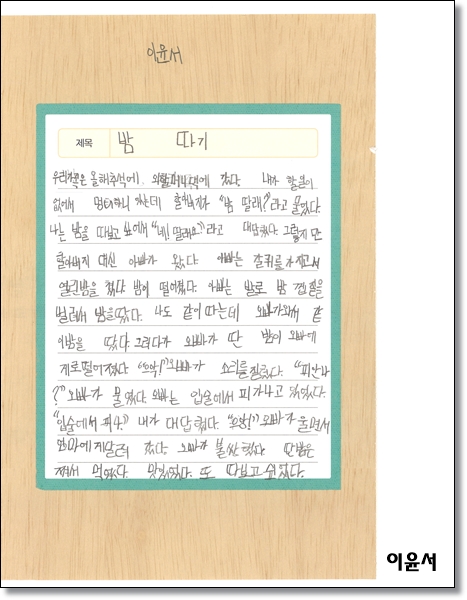 이윤서
제목 밤 따기
우리가족은 올해추석에 외할머니댁에 갔다. 내가 할일이
없어서 멍때리니 있는데 할아버지가 "밤 딸래?"라고 물었다.
나는 밤을 따보고 싶어서 "네! 딸래요"라고 대답했다. 그렇지만
할아버지 대신 아빠가 왔다. 아빠는 갈퀴를 가지고서
열린밤을 쳤다 밤이 떨어졌다. 아빠는 발로 밤 껍질을
벌려서 밤을땄다. 나도 같이 따는데 오빠가와서 같
이밤을 땄다 그러다가 오빠가 딴 밤이 오빠에
게로떨어졌다 "으악!"오빠가 소리를질렀다. "피안나
?" 오빠가 물었다. 오빠는 입술에서 피가나고 있었다.
"입술에서 피나." 내가 대답했다. "으앙!"오빠가 울면서
엄마에게달려 갔다. 오빠가 불쌍했다. 딴밤은
쪄서 먹었다. 맛있었다. 또 따보고 싶었다.
이윤서